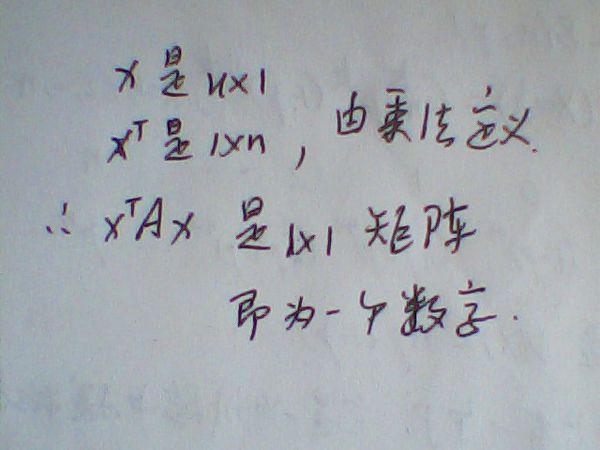 x 是 n×1
xᵀ 是 1×n, 由乘法定义.
∴ xᵀAx 是 1×1 矩阵
即为一个数字.